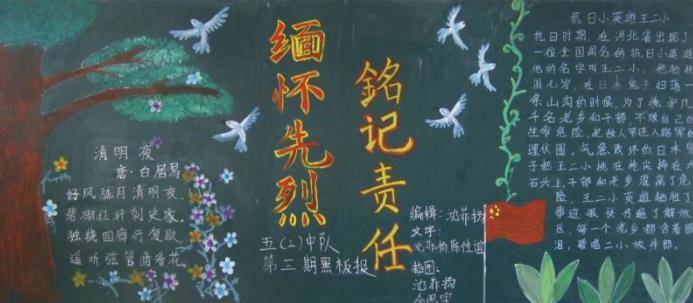 清明夜
唐·白居易
好风胧月清明夜
碧砌红轩刺史家
独绕回廊行复歇
遥听弦管暗看花
缅怀先烈
铭记责任
五(2)中队
第三期黑板报
编辑:沈菲扬
文字:
沈菲扬陈佳谊
插图:
沈菲扬
抗日小英雄王二小
抗日时期,在河北省出现了
一位全国闻名的抗日小英雄
他的名字叫王二小
在日本鬼子扫荡一
条山沟的时候,为了掩护几
千名老乡和干部,不顾自己的
生命危险,把敌人带进八路军的
埋伏圈。气急败坏的日本鬼
子把王二小挑在枪尖摔在
石头上,干部和老乡脱离了危
险,王二小英雄牺牲了
事迹很快传遍了解放
区,每一个老乡都含着眼
泪,歌唱二小放牛郎。